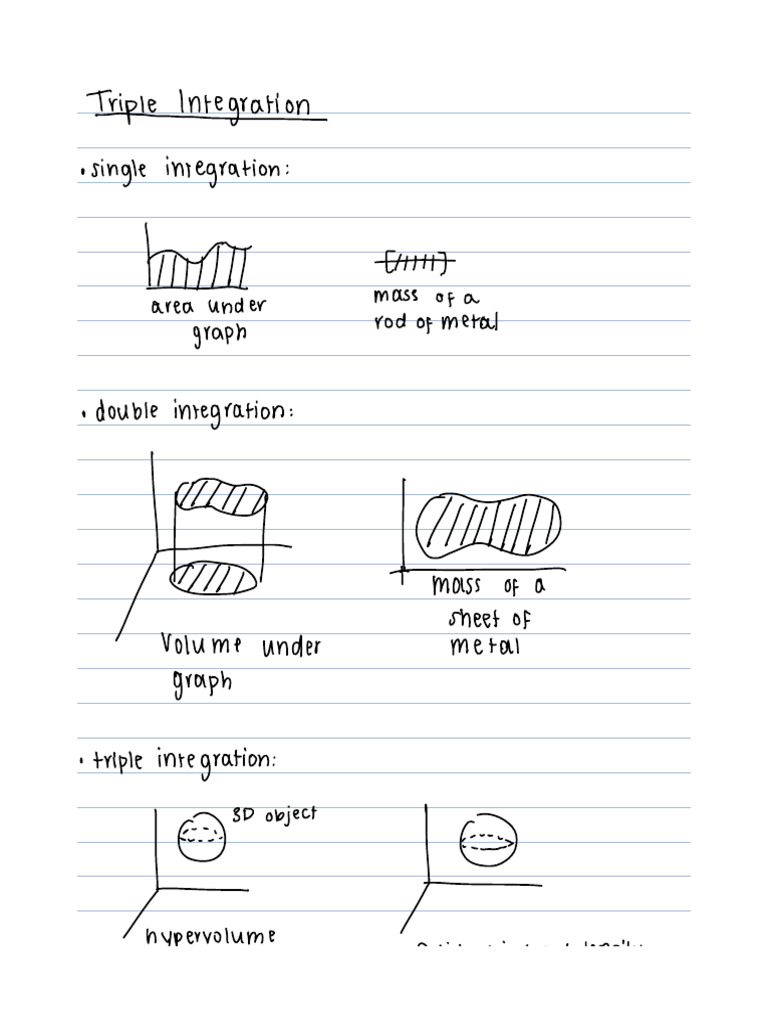 Triple Integration
• single integration:
area under
graph
mass of a
rod of metal
• double integration:
volume under
graph
mass of a
sheet of
metal
• triple integration:
3D object
hypervolume